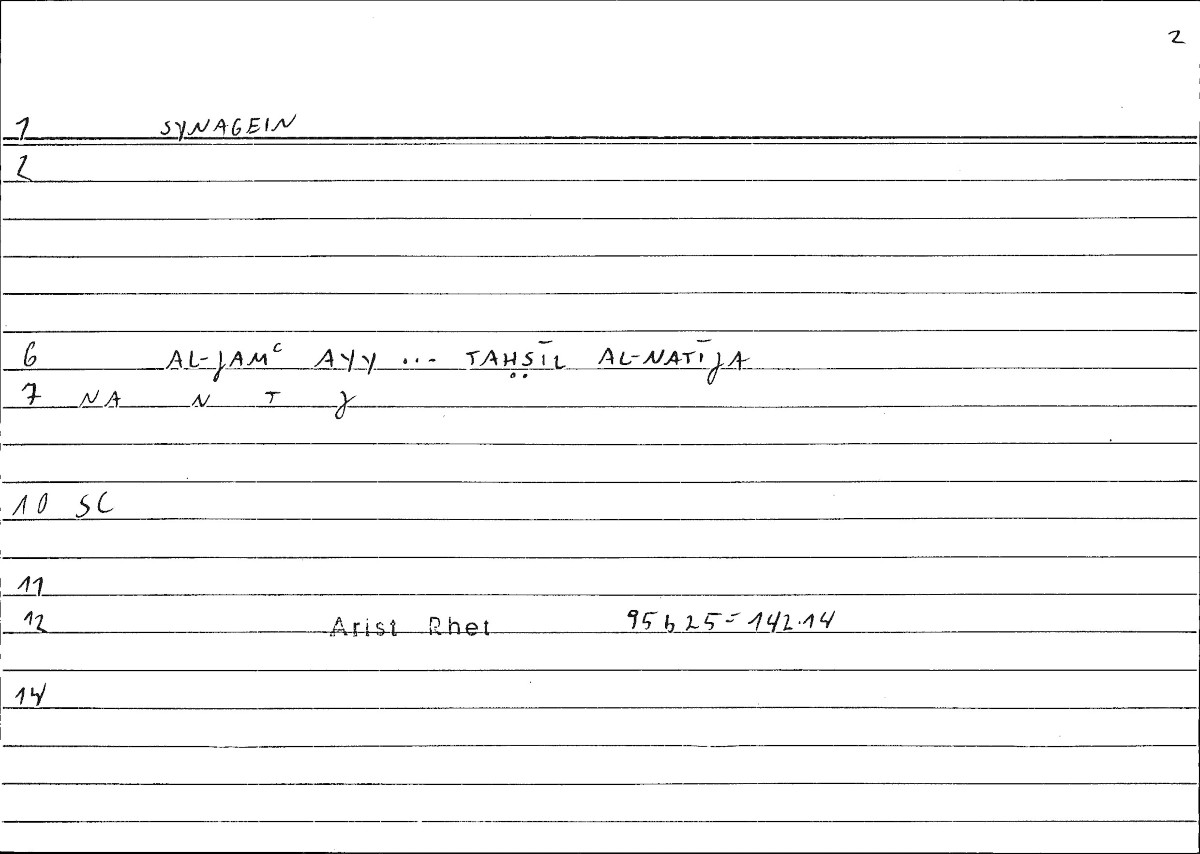 2
1 SYNAGEIN
2
6 AL-JAMᶜ AYY ... TAḤṢĪL AL-NATĪJA
7 NA N T J
10 SC
11
12 Arist Rhet 95b25=142.14
14